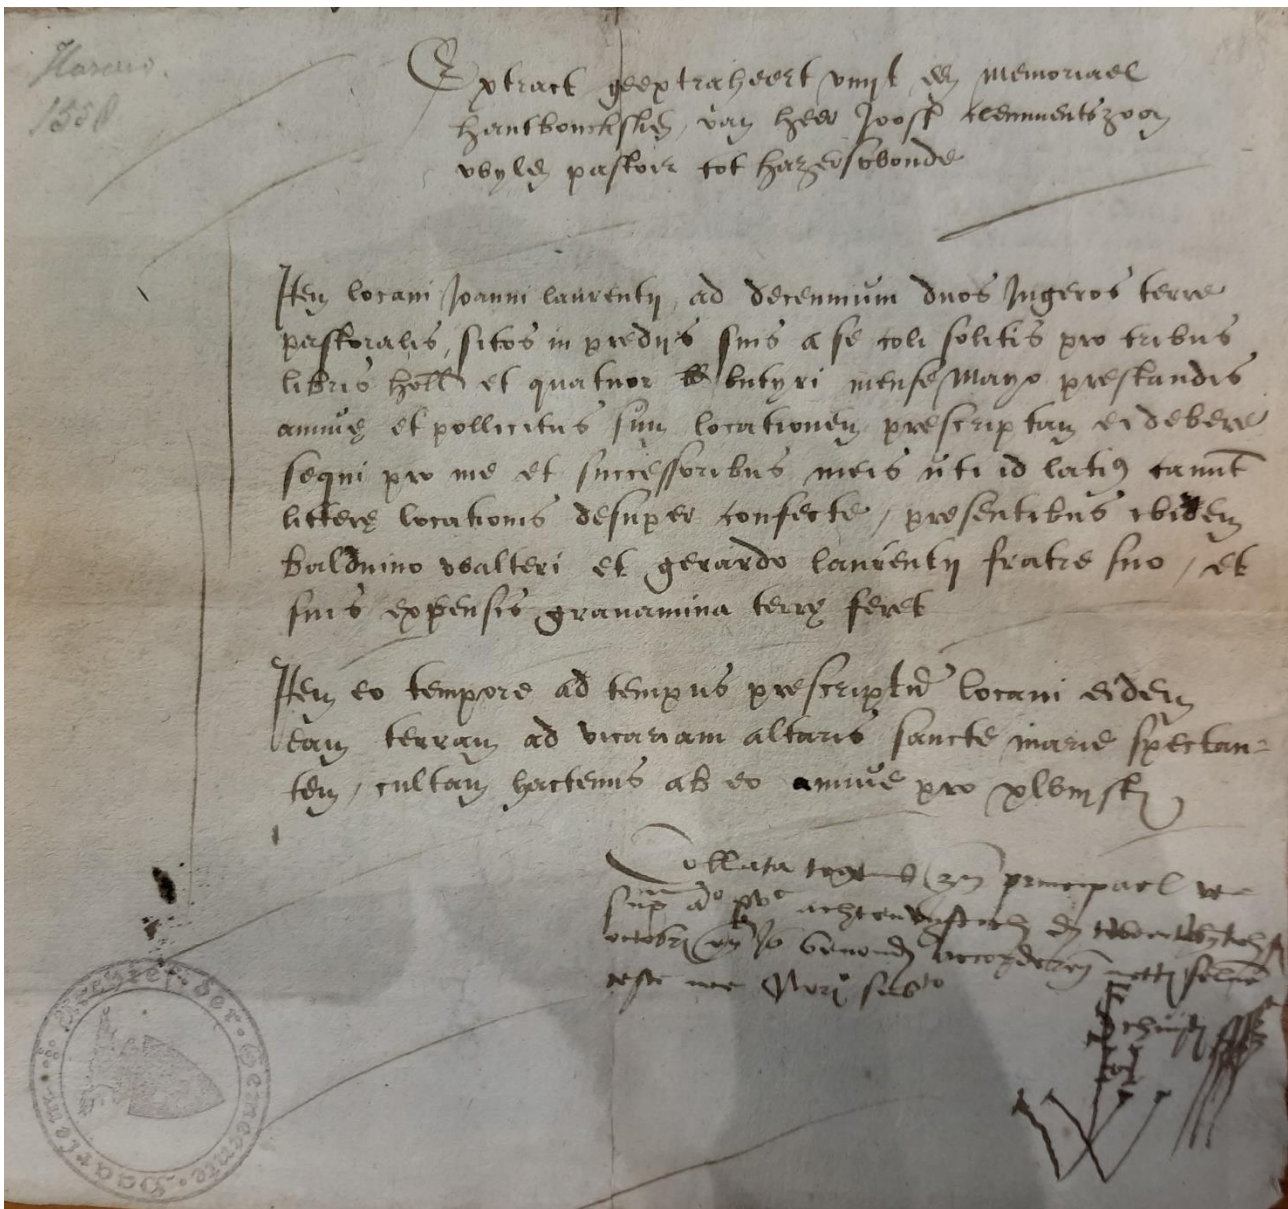 1558
Extract geextraheert vuijt een memoriael
hantboucksken van heer Joost clementszoon
wylen pastoir tot hazerswoude
Item locavi Joanni laurentij ad decennium duos Jugeros terre
pastoralis, sitos in predijs suis a se coli solitis pro tribus
libris holl et quatuor butyri mense Mayo prestandis
annue et pollicitus sum locationem prescriptam ei debere
sequi pro me et successoribus meis uti id latius canunt
littere locationis desuper confecte, presentibus ibidem
balduino walteri et gerardo laurentij fratre suo, et
suis expensis gravamina terre feret
Item eo tempore ad tempus prescriptum locavi eidem
eam terram ad vicariam altaris sancte marie spectan=
tem, cultam hactenus ab eo annue pro xlviij st
Collata tegens zyn principael
sup ao xvc achtenvyftich den
octobri es Js bevonden accorderen mette selve
teste me
Archief der Gemeente Haarlem